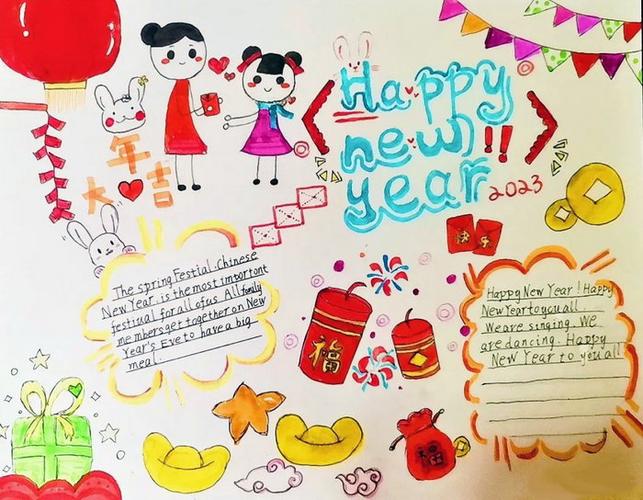 Happy
new
year!!
2023
年
大 吉
The spring Festial. Chinese
New Year. is the most important
festival for all of us. All family
members get together on New
Year's Eve to have a big
meal.
福
Happy New Year! Happy
New Year to you all.
We are singing. We
are dancing. Happy
New Year to you all
福